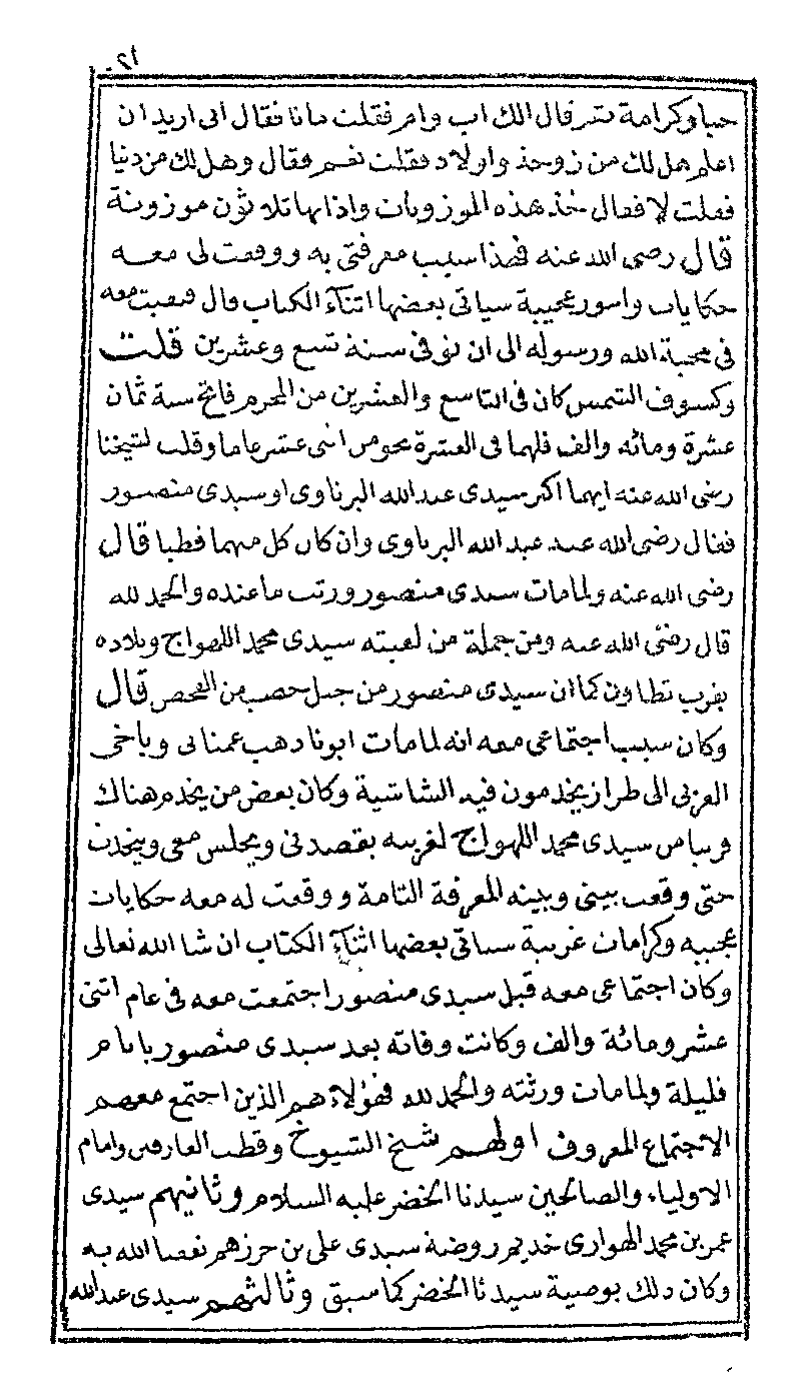 ٢١
حبا وكرامة ثم قال الك اب وام فقلت ماتا فقال انى اريد ان
اعلم هل لك من زوجة واولاد فقلت نعم فقال وهل لك من دنيا
فقلت لا فقال خذ هذه الموزونات واذا بها ثلاثون موزونة
قال رضى الله عنه فهذا سبب معرفتى به ووقعت لى معه
حكايات وامور عجيبة سياتى بعضها اثناء الكتاب قال فبقيت معه
فى محبة الله ورسوله الى ان توفى سنة تسع وعشرين قلت
وكسوف الشمس كان فى التاسع والعشرين من المحرم فاتح سنة ثمان
عشرة ومائه والف فلهما فى العشرة نحو من اثنى عشر عاما وقلت لشيخنا
رضى الله عنه ايهما اكبر سيدى عبد الله البرناوى او سيدى منصور
فقال رضى الله عنه عبد الله البرناوى وان كان كل منهما قطبا قال
رضى الله عنه ولمامات سيدى منصور ورثت ما عنده والحمد لله
قال رضى الله عنه ومن جملة من لقيته سيدى محمد اللهواج وبلاده
بقرب تطاون كما ان سيدى منصور من جبل حصب من الفحص قال
وكان سبب اجتماعى معه انه لمامات ابونا ذهب عمنا بى وباخى
العربى الى طراز يخدمون فيه الشاشية وكان بعض من يخدم هناك
قريبا من سيدى محمد اللهواج لقريبه يقصدنى ويجلس معى ويتحدث
حتى وقعت بينى وبينه المعرفة التامة ووقعت له معه حكايات
عجيبه وكرامات غريبة سياتى بعضها اثناء الكتاب ان شا الله تعالى
وكان اجتماعى معه قبل سيدى منصور اجتمعت معه فى عام اثنى
عشر ومائة والف وكانت وفاته بعد سيدى منصور بايام
قليلة ولمامات ورثته والحمد لله فهؤلاء هم الذين اجتمع معهم
الاجتماع المعروف اولهم شيخ الشيوخ وقطب العارفين وامام
الاولياء والصالحين سيدنا الخضر عليه السلام وثانيهم سيدى
عمر بن محمد الهوارى خديم روضة سيدى على بن حرزهم نفعنا الله به
وكان ذلك بوصية سيدنا الخضر كما سبق وثالثهم سيدى عبد الله